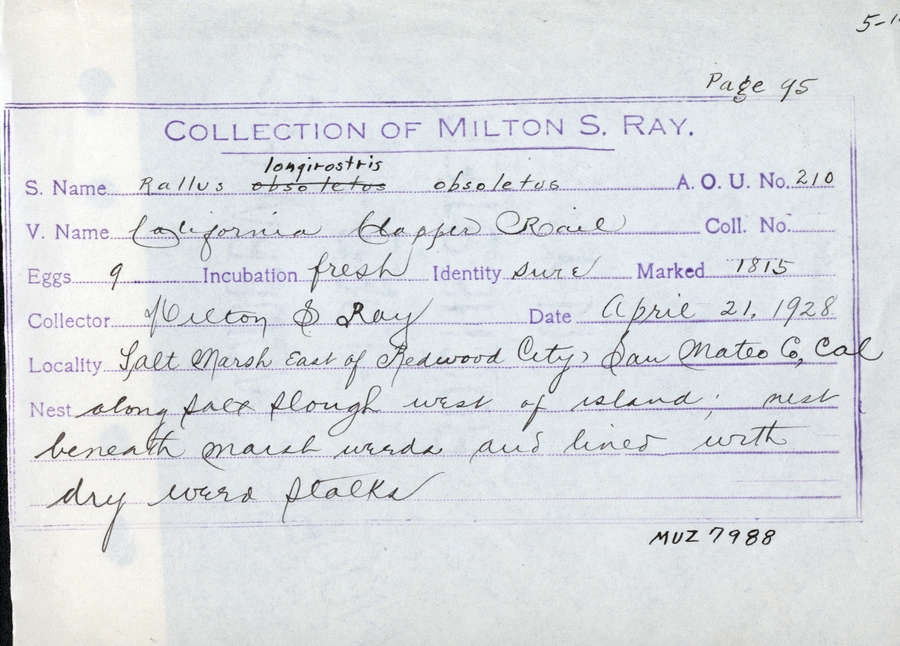 5-1
Page 95
COLLECTION OF MILTON S. RAY.
longirostris
S. Name Rallus obsoletus obsoletus A. O. U. No. 210
V. Name California Clapper Rail Coll. No.
Eggs 9 Incubation fresh Identity sure Marked 1815
Collector Milton S Ray Date April 21, 1928
Locality Salt Marsh East of Redwood City, San Mateo Co, Cal
Nest along salt slough west of island; nest
beneath marsh weeds and lined with
dry weed stalks
MUZ 7988